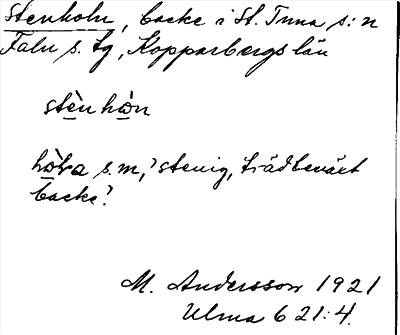 Stenholn, backe i St. Tuna s:n
Falu s. tg, Kopparbergs län
stèn hòn
s.m, 'stenig, trädbeväxt
backe'.
M. Andersson 1921
Ulma 621:4.